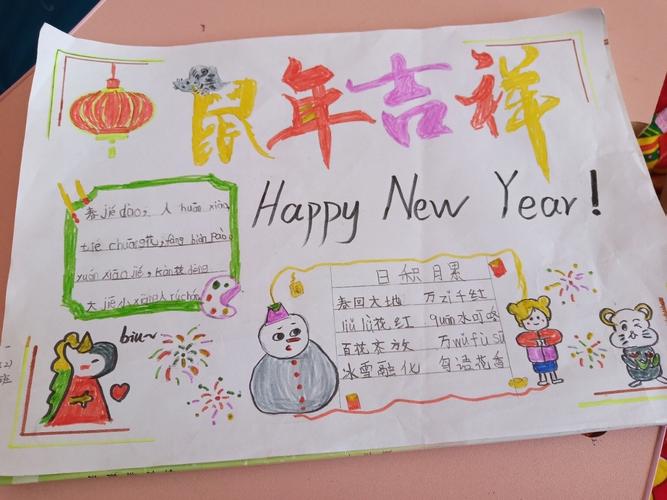 鼠年吉祥
Happy New Year!
春jié dào, 人huān xiào,
tiē chuāng花, fàng biān pào,
yuán xiāo jié, kàn花dēng
大jiē小xiàng人rú cháo
日积月累
春回大地 万zǐ千红
liǔ lǜ花红 quán水叮咚
百花齐放 万wù fù sū
冰雪融化 鸟语花香
biu~